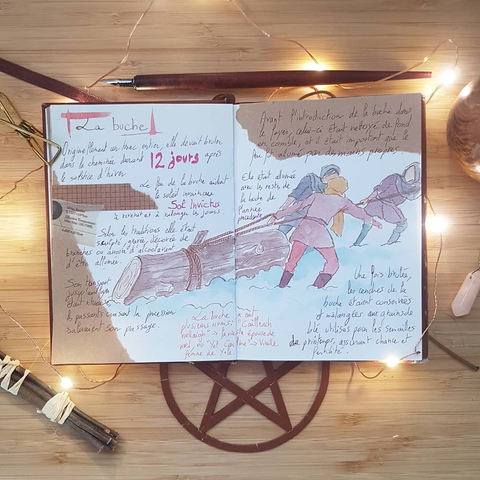 La buche
Originellement un tronc entier, elle devait bruler
dans la cheminée durant 12 jours après
le solstice d'hiver.
Le feu de la buche aidait
le soleil
Sol Invictus
à renaitre et à rallonger les jours
Selon les traditions elle était
sculptée, gravée, décorée de
branches ou arrosée d'alcool avant
d'être allumée.
Son
était
les passants croisant la procession
saluaient son passage.
La buche a
plusieurs noms: Cailleach
Noël, ou Yet Vieille
femme de Yule.
Avant l'introduction de la buche dans
le foyer, celui-ci était nettoyé de fond
en comble, et il était important que le
feu allumé par des mains propres.
Elle était allumée
avec les restes de
la buche de
l'année
précédente
Une fois brulées,
les cendres de la
buche étaient conservées
et mélangées aux grains de
blé utilisés pour les semailles
de printemps, assurant chance et
fertilité...